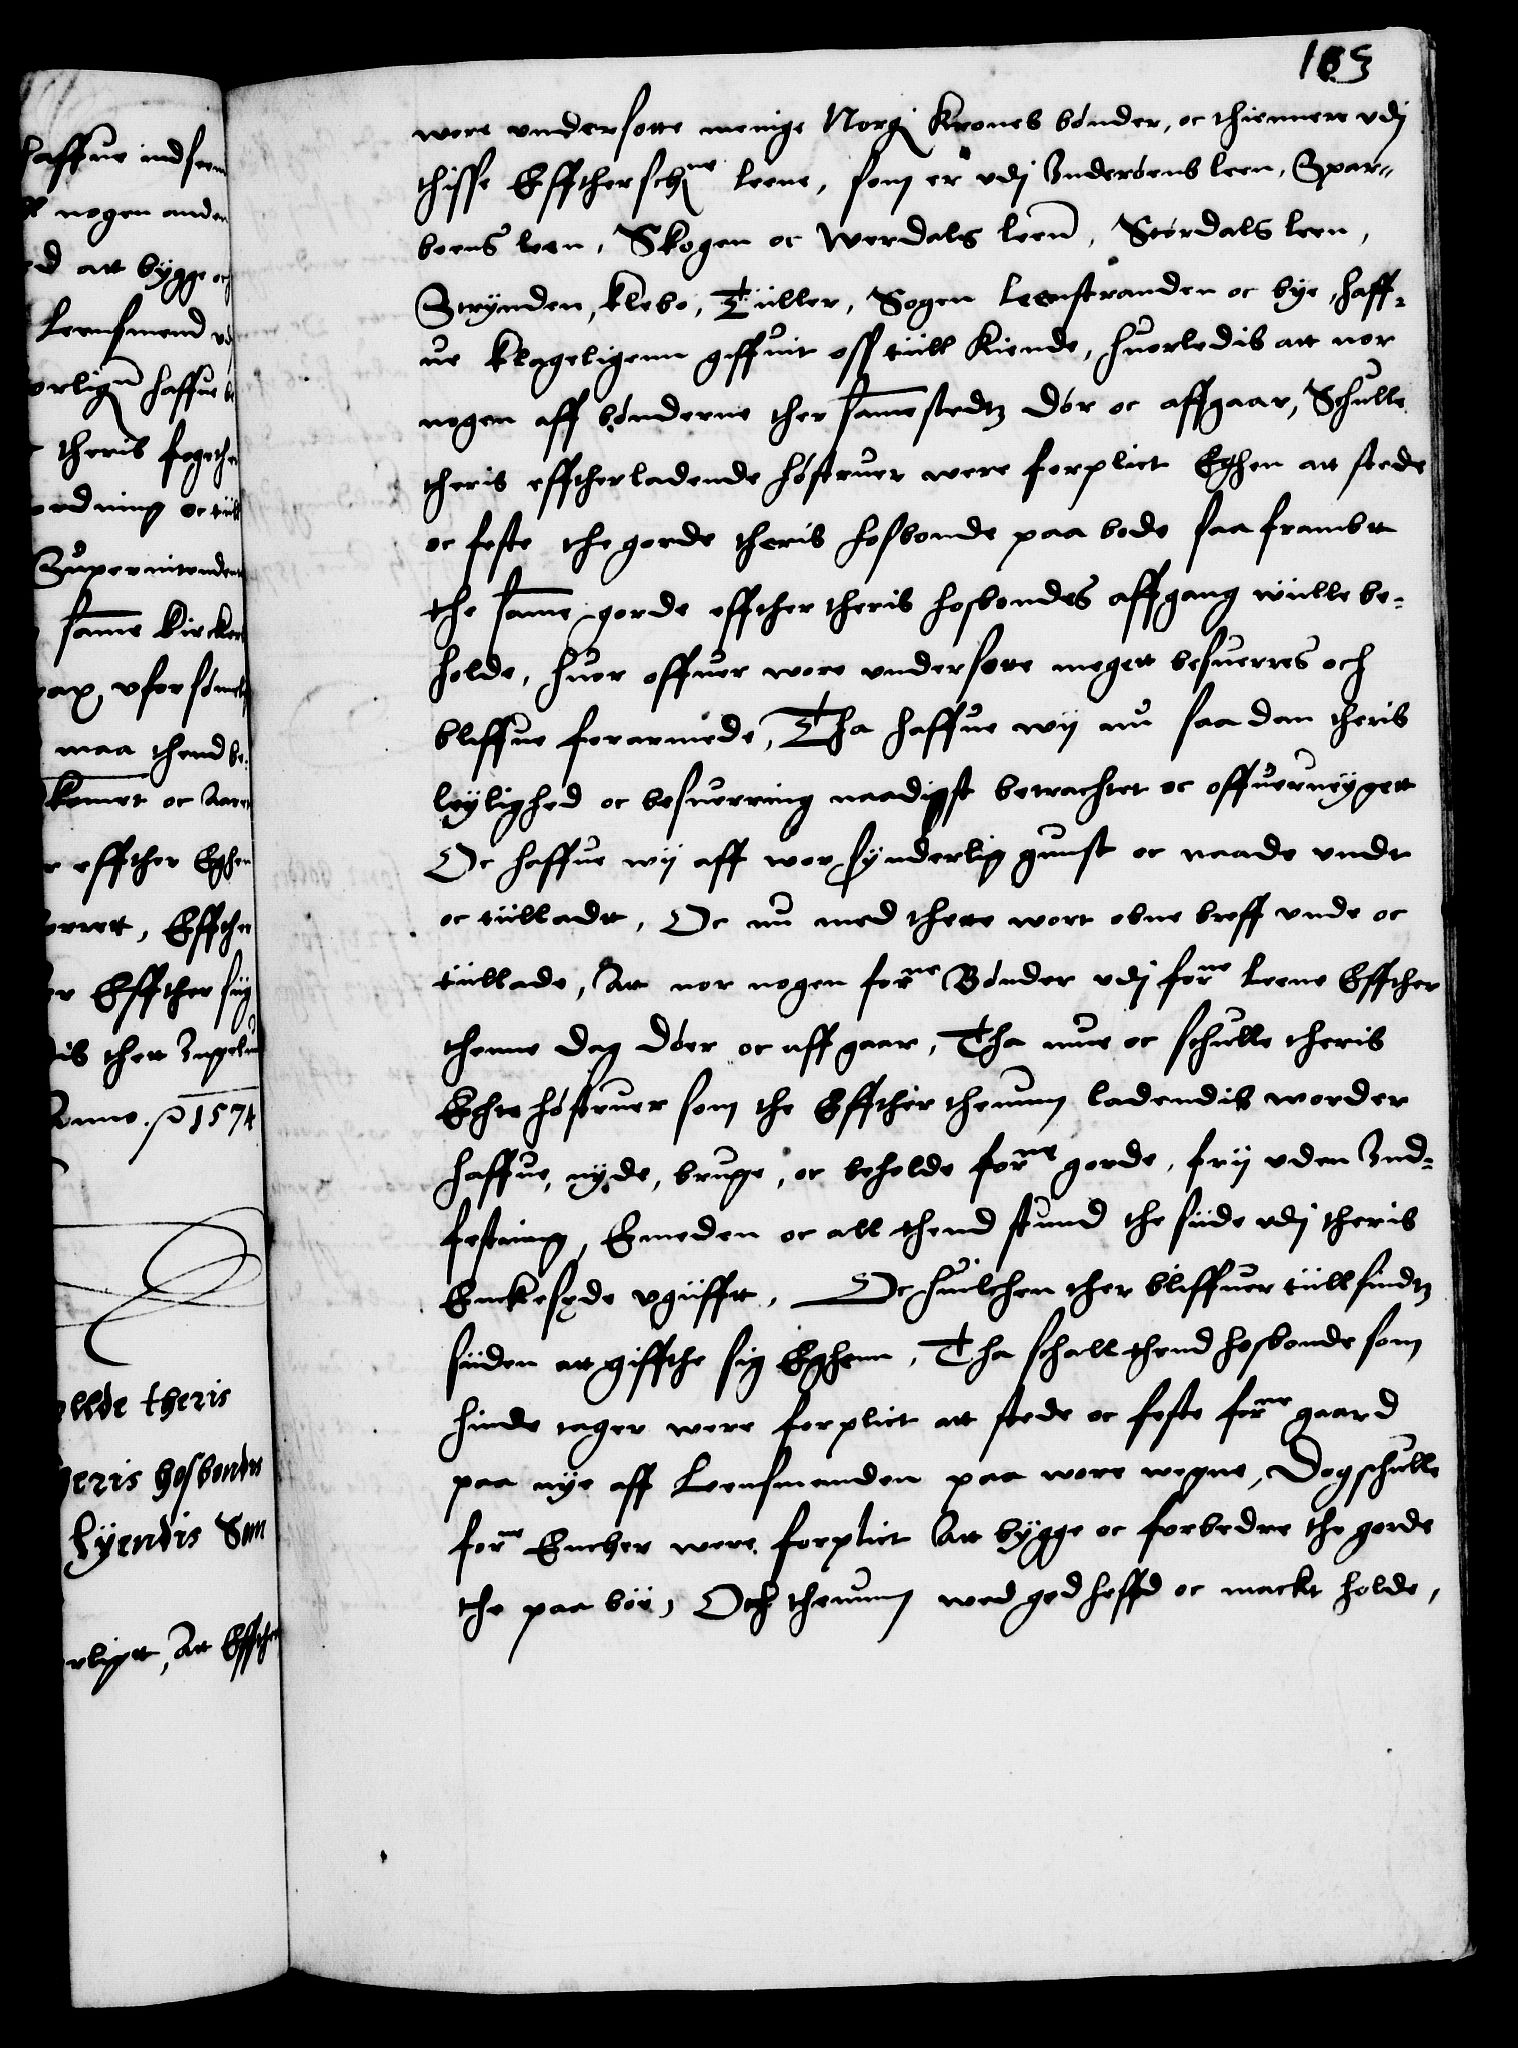 103
wore vndersotte menige Norgis Krones bønder, oc thiennere vdj
thisse Effthersch:ne leene, som er vdj Inderøens leen, Spar-
boens leen, Skogen oc Werdals leen, Størdals leen,
Strynden, Klebo, Tiiller, Sogen Leenstranden oc bye, haff-
ue klageligenn giffuit oss tiill kiende, huorledis att nor
nogen aff bønderne ther samestedtz dør oc affgaar, Schulle
theris effterladende høstruer were forplict Eghen att stede
oc feste the gorde theris hosbonde paa bode saa frambtt
the same gorde effther theris hosbondes affgang wiille be-
holde, huor offuer wore vndersotte megett besuerres och
bliffue forarmede, Tha haffue wij nu saadan theris
leylighed oc besuerring naadigst betrachtet oc offuerueygett
Oc haffue wij aff wor synderlig gunst oc naade vndt
oc tiilladtt, Oc nu med thette wort obne breff vnde oc
tiillade, Att nor nogen for:ne Bønder vdj for:ne leene Effther
thenne dag døer oc affgaar, Tha mue oc schulle theris
Echte høstruer som the Effther thenum ladendis worder
haffue, nyde, bruge, oc beholde for:ne gorde, frij vden Ind-
festning, Emeden oc all thend stund the siide vdj theris
Enckesede vgiifftt, Oc huilchen ther bliffuer tiill sindtz
siiden att giffthe sig Eghenn, Tha schall thend hosbonde som
hinde tager were forplict att stede oc feste for:ne gaard
paa nye aff Leensmanden paa wore wegne, Dog schulle
for:ne Encher were forplict Att bygge oc forbedre the gorde
the paa boe, Och thenum wed god heffd oc mackt holde,
haffue indseen
nogen anden
att bygge och
Leensmend
haffue
theris fogether
ordning oc tiill
Superintendent
same kircker
vforsømet
maa thend be-
oc
effther Eghen
Effther
Effther siig
thett
Anno 1574
theris
theris hosbondes
Att Effther